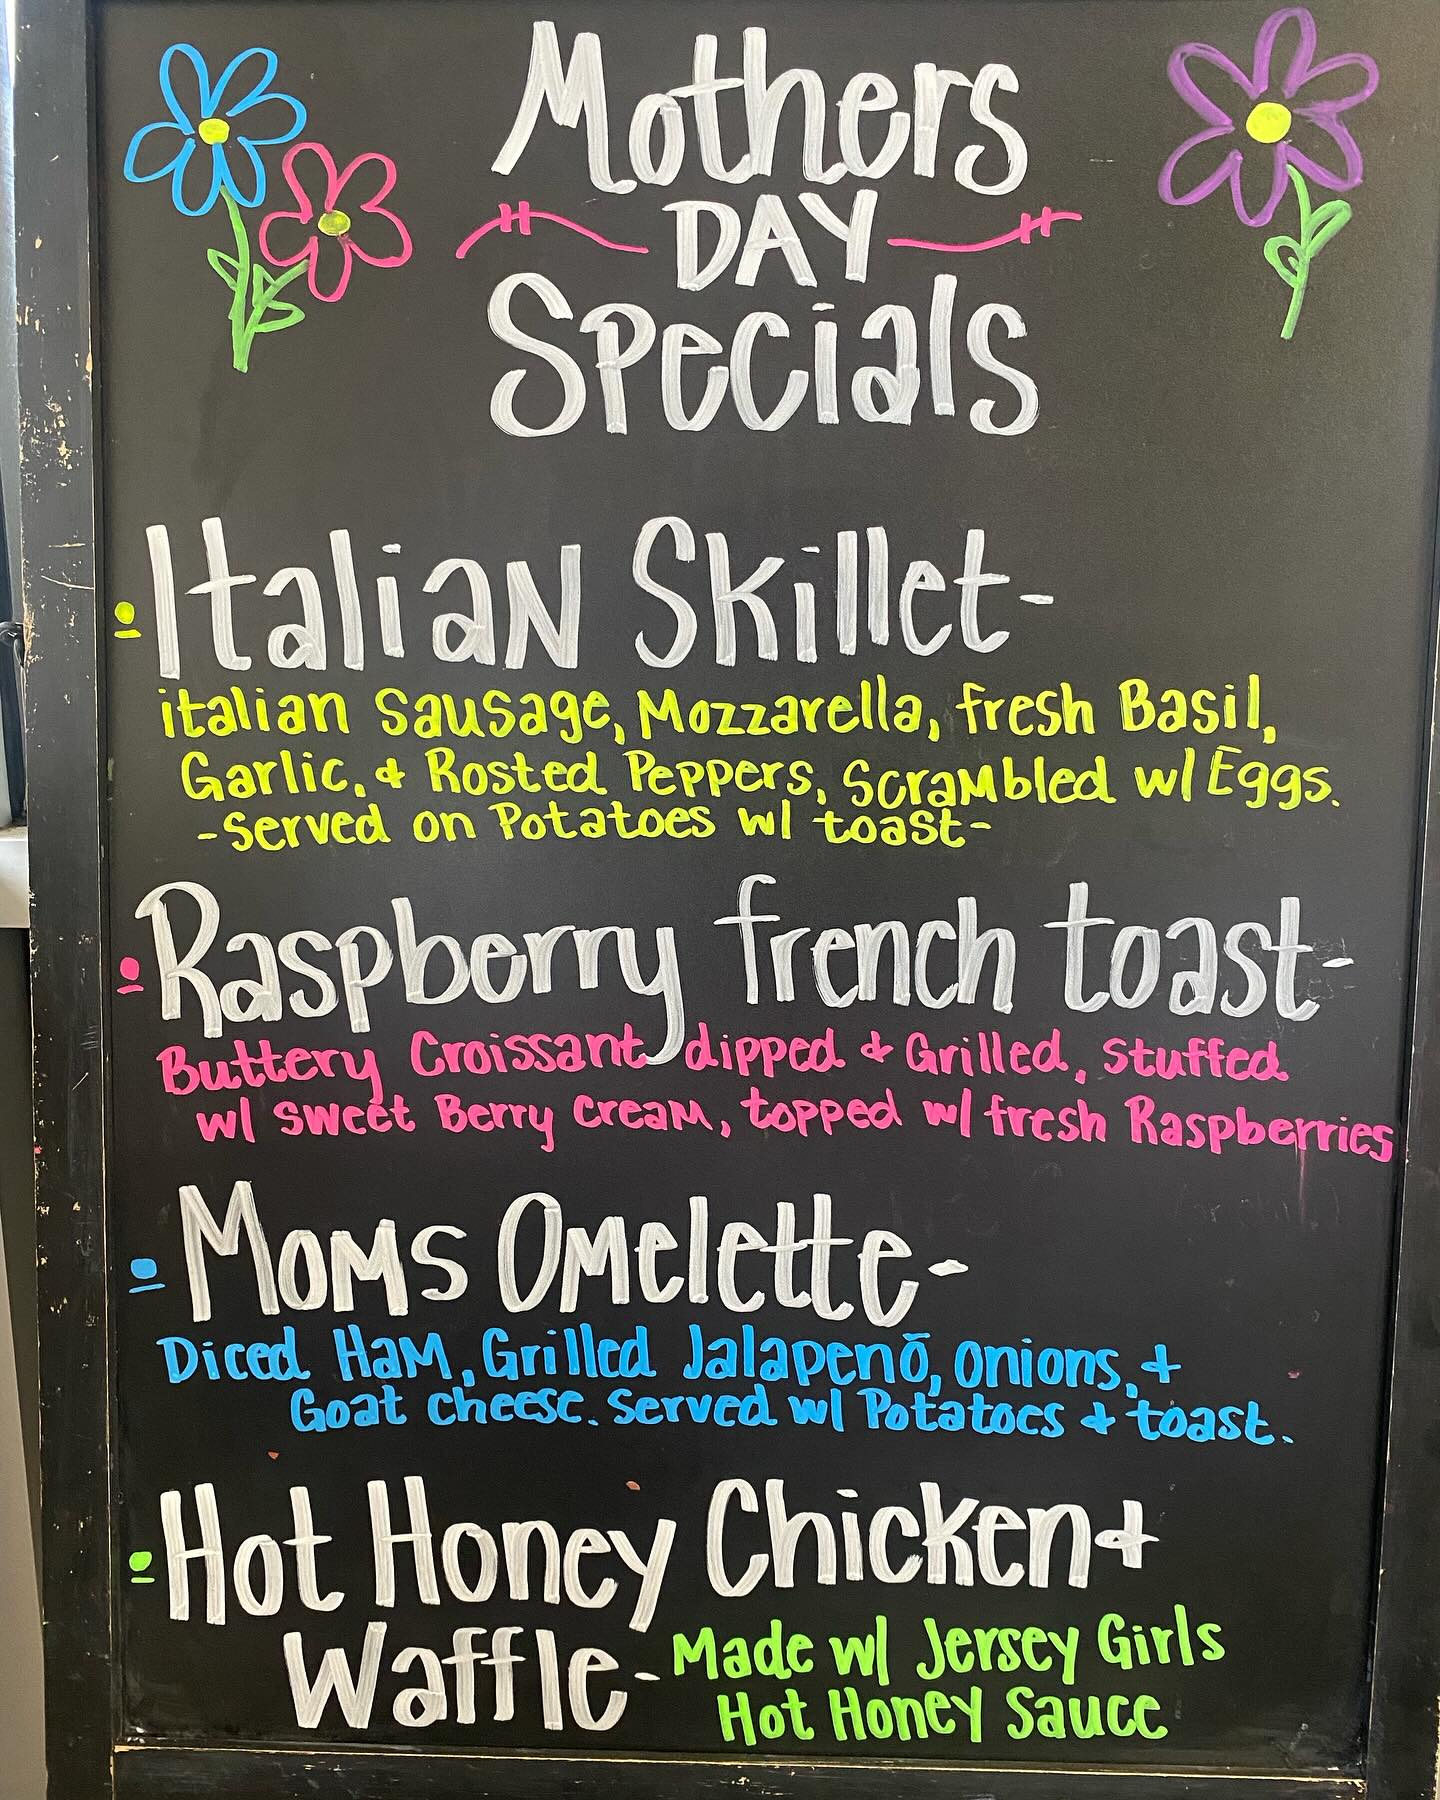 Mothers
DAY
Specials
Italian Skillet-
italian Sausage, Mozzarella, fresh Basil,
Garlic, & Rosted Peppers, Scrambled w/ Eggs.
-Served on Potatoes w/ toast-
Raspberry french toast-
Buttery Croissant dipped & Grilled, Stuffed
w/ sweet Berry Cream, topped w/ fresh Raspberries
Moms Omelette-
Diced Ham, Grilled Jalapenō, onions, &
Goat cheese. Served w/ Potatoes & toast.
Hot Honey Chicken &
Waffle- Made w/ Jersey Girls
Hot Honey Sauce